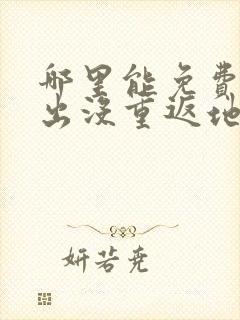 哪里能免费
出没重返地
妍若尧